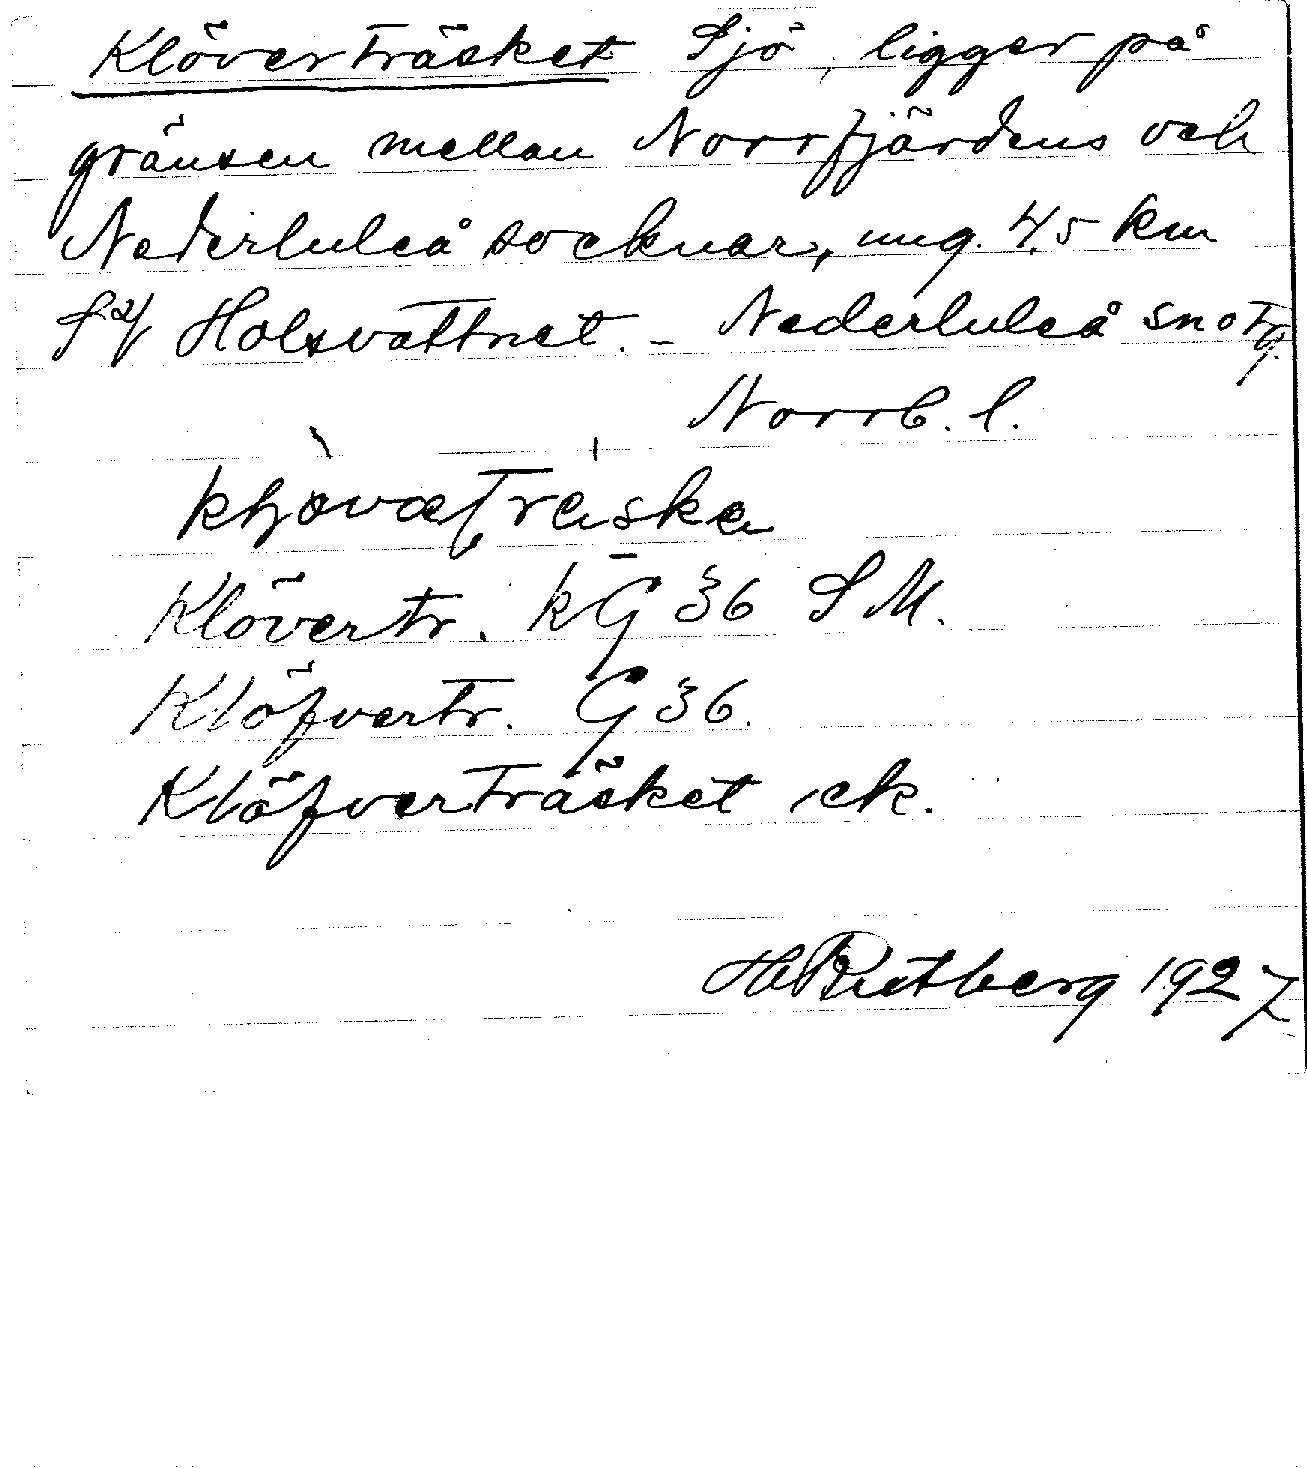 Klöverträsket Sjö, ligger på
gränsen mellan Norrfjärdens och
Nederluleå socknar, ung. 4,5 km
S af Holsvattnet. - Nederluleå sn o tg.
Norrb. l.
Klövertr. kG 36 S M.
Klöfvertr. G 36.
Klöfverträsket ek.
H Rutberg 1927